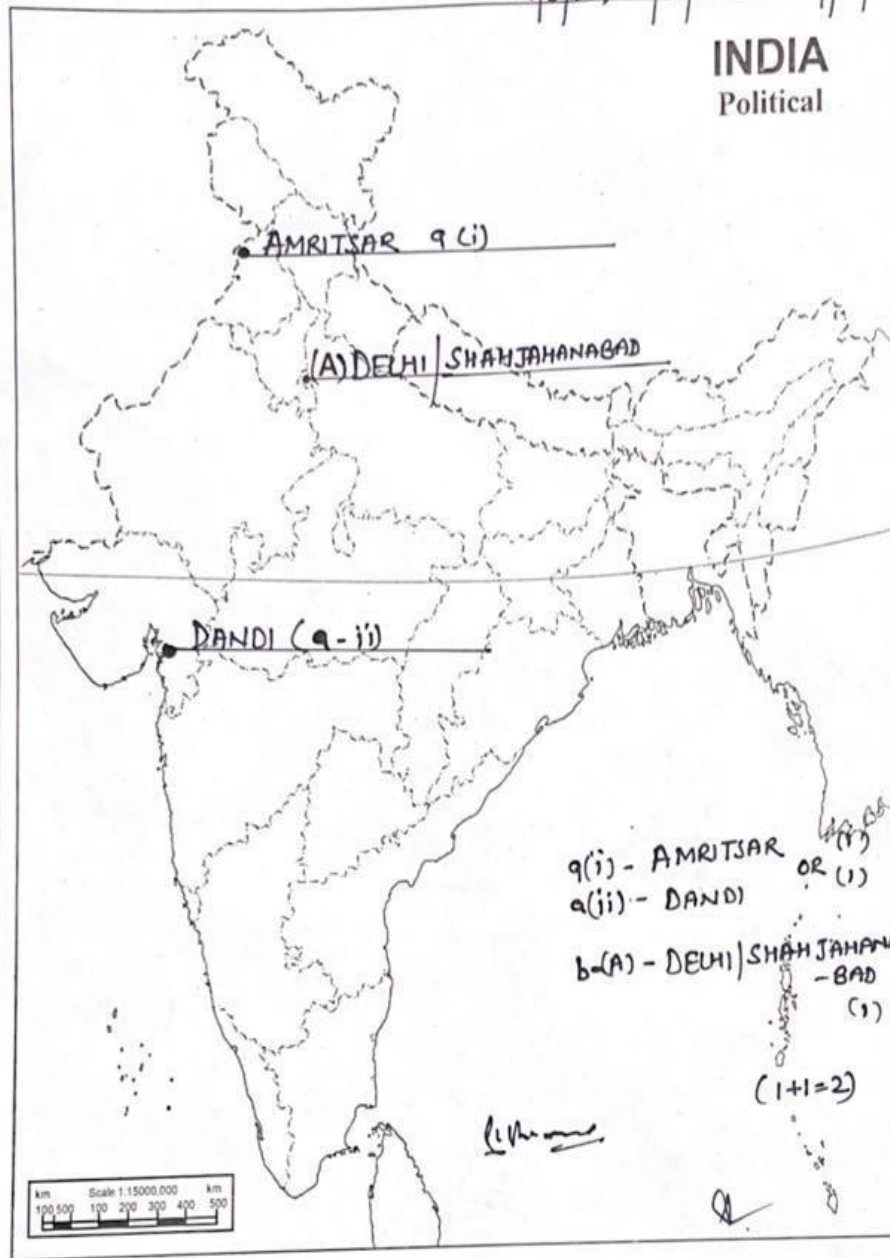 INDIA
Political
AMRITSAR a (i)
(A) DELHI / SHAHJAHANABAD
DANDI (a - ii)
a(i) - AMRITSAR (1)
OR
a(ii) - DANDI (1)
b-(A) - DELHI | SHAHJAHANA
-BAD
(1)
(1+1=2)
km Scale 1:15000,000 km
100 500 100 200 300 400 500